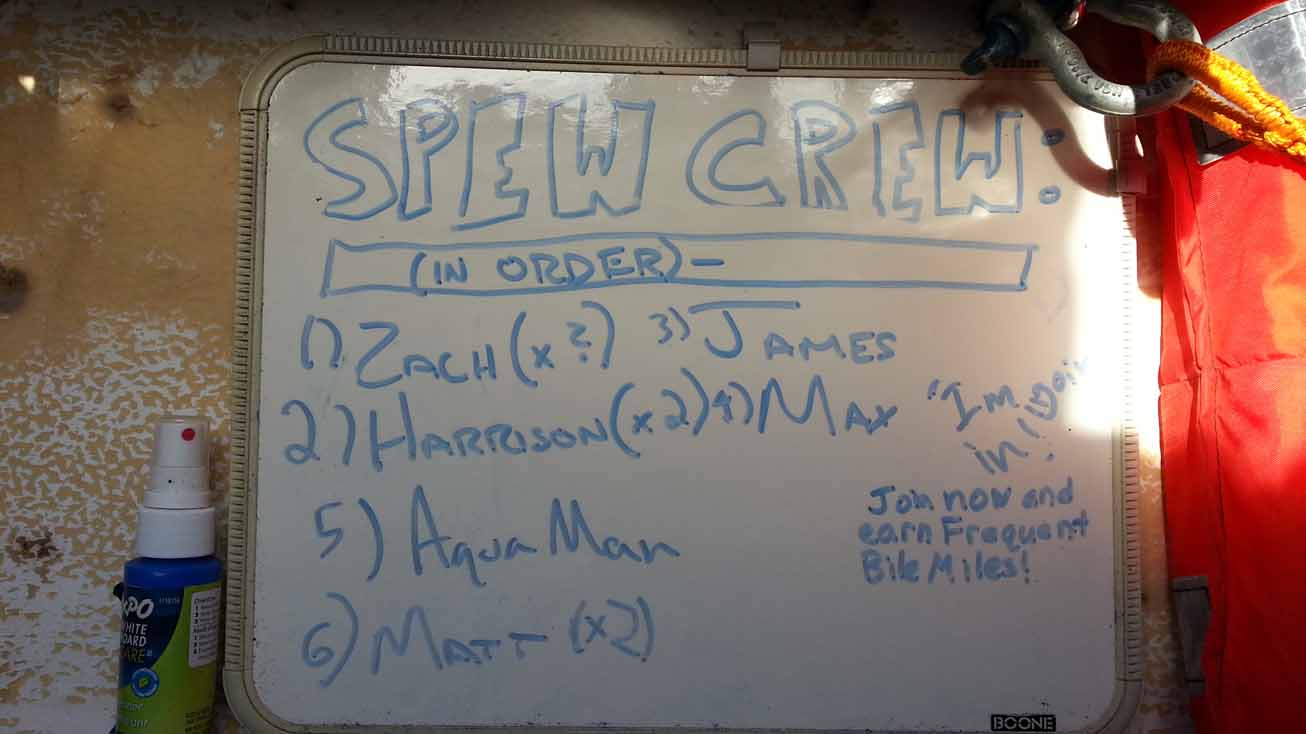 SPEW CREW:
(IN ORDER)-
1) ZACH (x?)
2) HARRISON (x2)
3) JAMES
4) MAX
"I'm goin
in!
Join now and
earn Frequent
Bile Miles!
5) Aqua Man
6) MATT (x2)
EXPO
WHITE
BOARD
CARE
BOONE